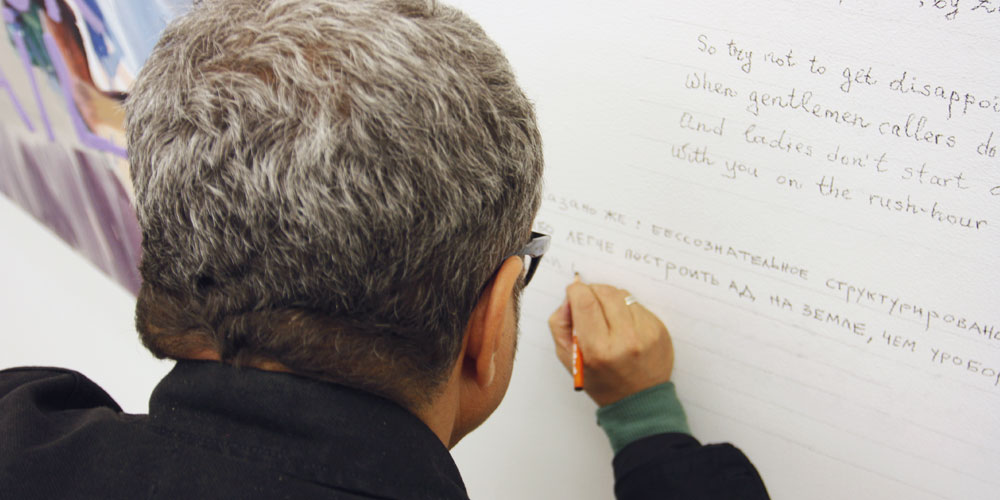 , by
So try not to get disappoi
when gentlemen callers do
and ladies don't start
with you on the rush-hour
азано же: бессознательное структурировано
легче построить ад на земле, чем уробор